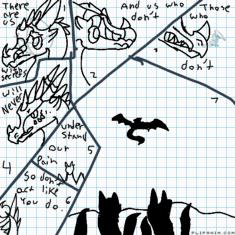 There
are
us
with
secrets
1
And us who
don't
2
Those
who
don't
7
will
Never
under
Stand
our
Pain
5
4
So don't
act like
You do.
6
FLIPANIM.COM